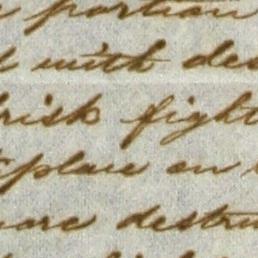 portion
with des
risk fight
place on
ore destru